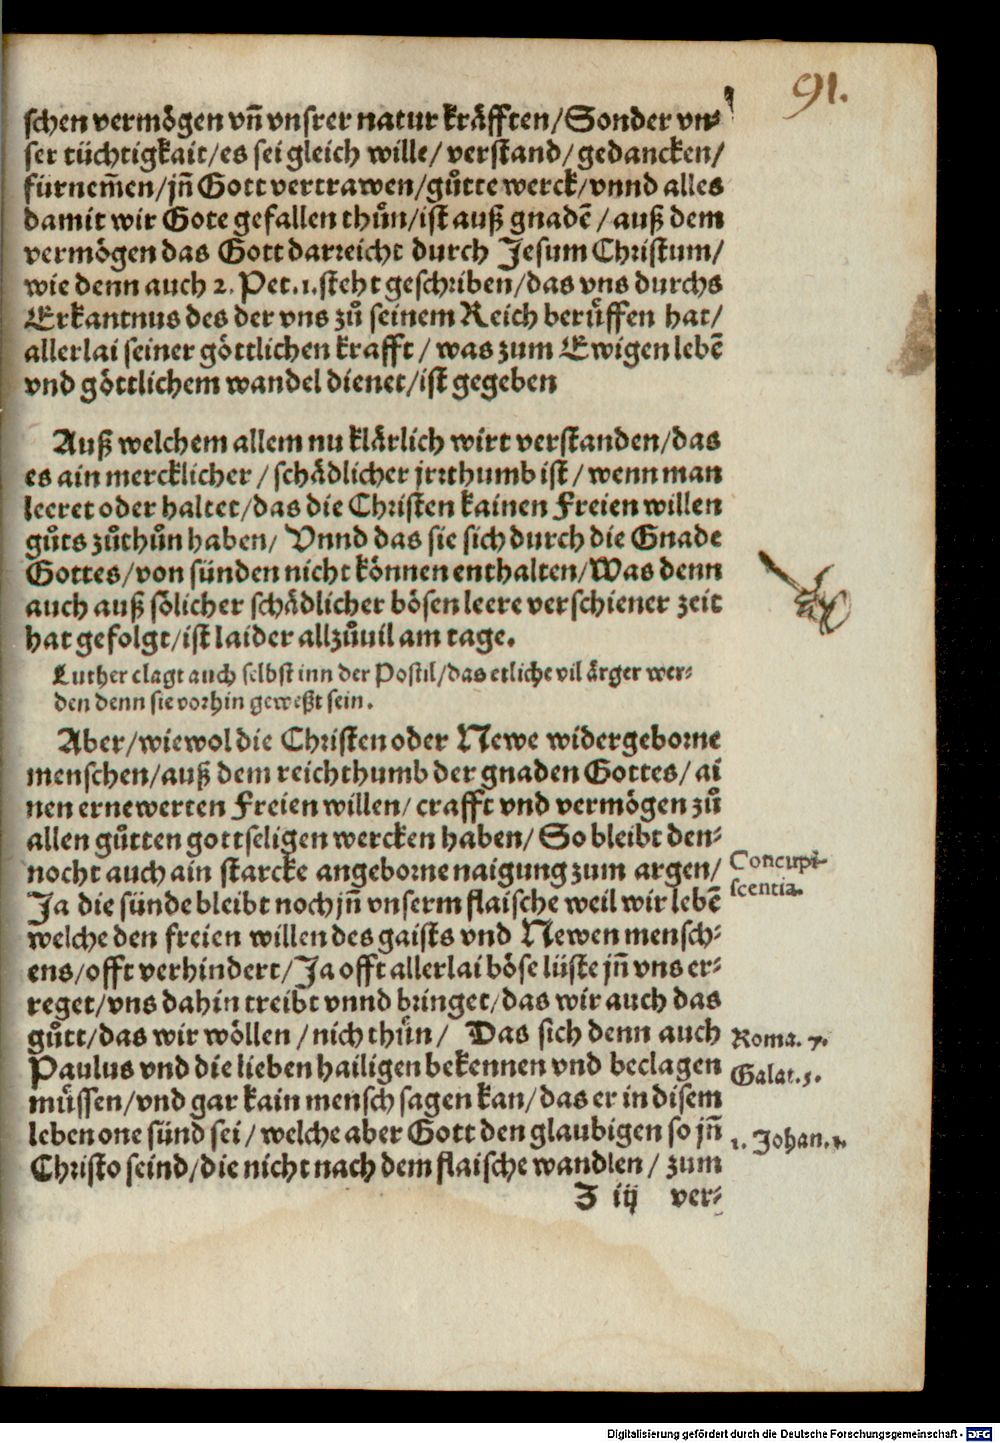 91.
schen vermögen vñ vnsrer natur kräfften/Sonder vn⸗
ser tüchtigkait/es sei gleich wille/ verstand/gedancken/
fürnem̃en/jñ Gott vertrawen/gůtte werck/vnnd alles
damit wir Gote gefallen thůn/ist auß gnadẽ/auß dem
vermögen das Gott darreicht durch Jesum Christum/
wie denn auch 2. Pet.1.steht geschriben/das vns durchs
Erkantnus des der vns zů seinem Reich berůffen hat/
allerlai seiner göttlichen krafft/ was zum Ewigen lebẽ
vnd göttlichem wandel dienet/ist gegeben
Auß welchem allem nu klärlich wirt verstanden/das
es ain mercklicher/schädlicher jrrthumb ist/wenn man
leeret oder haltet/das die Christen kainen Freien willen
gůts zůthůn haben/ Vnnd das sie sich durch die Gnade
Gottes/von sünden nicht können enthalten/Was denn
auch auß sölicher schädlicher bösen leere verschiener zeit
hat gefolgt/ist laider allzůuil am tage.
Luther clagt auch selbst inn der Postil/das etliche vil ärger wer⸗
den denn sie vorhin geweßt sein.
Aber/wiewol die Christen oder Newe widergeborne
menschen/auß dem reichthumb der gnaden Gottes/ai
nen ernewerten Freien willen/crafft vnd vermögen zů
allen gůtten gottseligen wercken haben/ So bleibt den⸗
nocht auch ain starcke angeborne naigung zum argen/
Concupi⸗
scentia.
Ja die sünde bleibt noch jñ vnserm flaische weil wir lebẽ
welche den freien willen des gaists vnd Newen mensch⸗
ens/offt verhindert/Ja offt allerlai böse lüste jñ vns er⸗
reget/vns dahin treibt vnnd bringet/das wir auch das
gůtt/das wir wöllen/nich thůn/ Das sich denn auch
Roma. 7.
Paulus vnd die lieben hailigen bekennen vnd beclagen
Galat.5.
müssen/vnd gar kain mensch sagen kan/das er in disem
leben one sünd sei/welche aber Gott den glaubigen so jñ
1. Johan. 1.
Christo seind/die nicht nach dem flaische wandlen/ zum
Z iij ver⸗
Digitalisierung gefördert durch die Deutsche Forschungsgemeinschaft - DFG